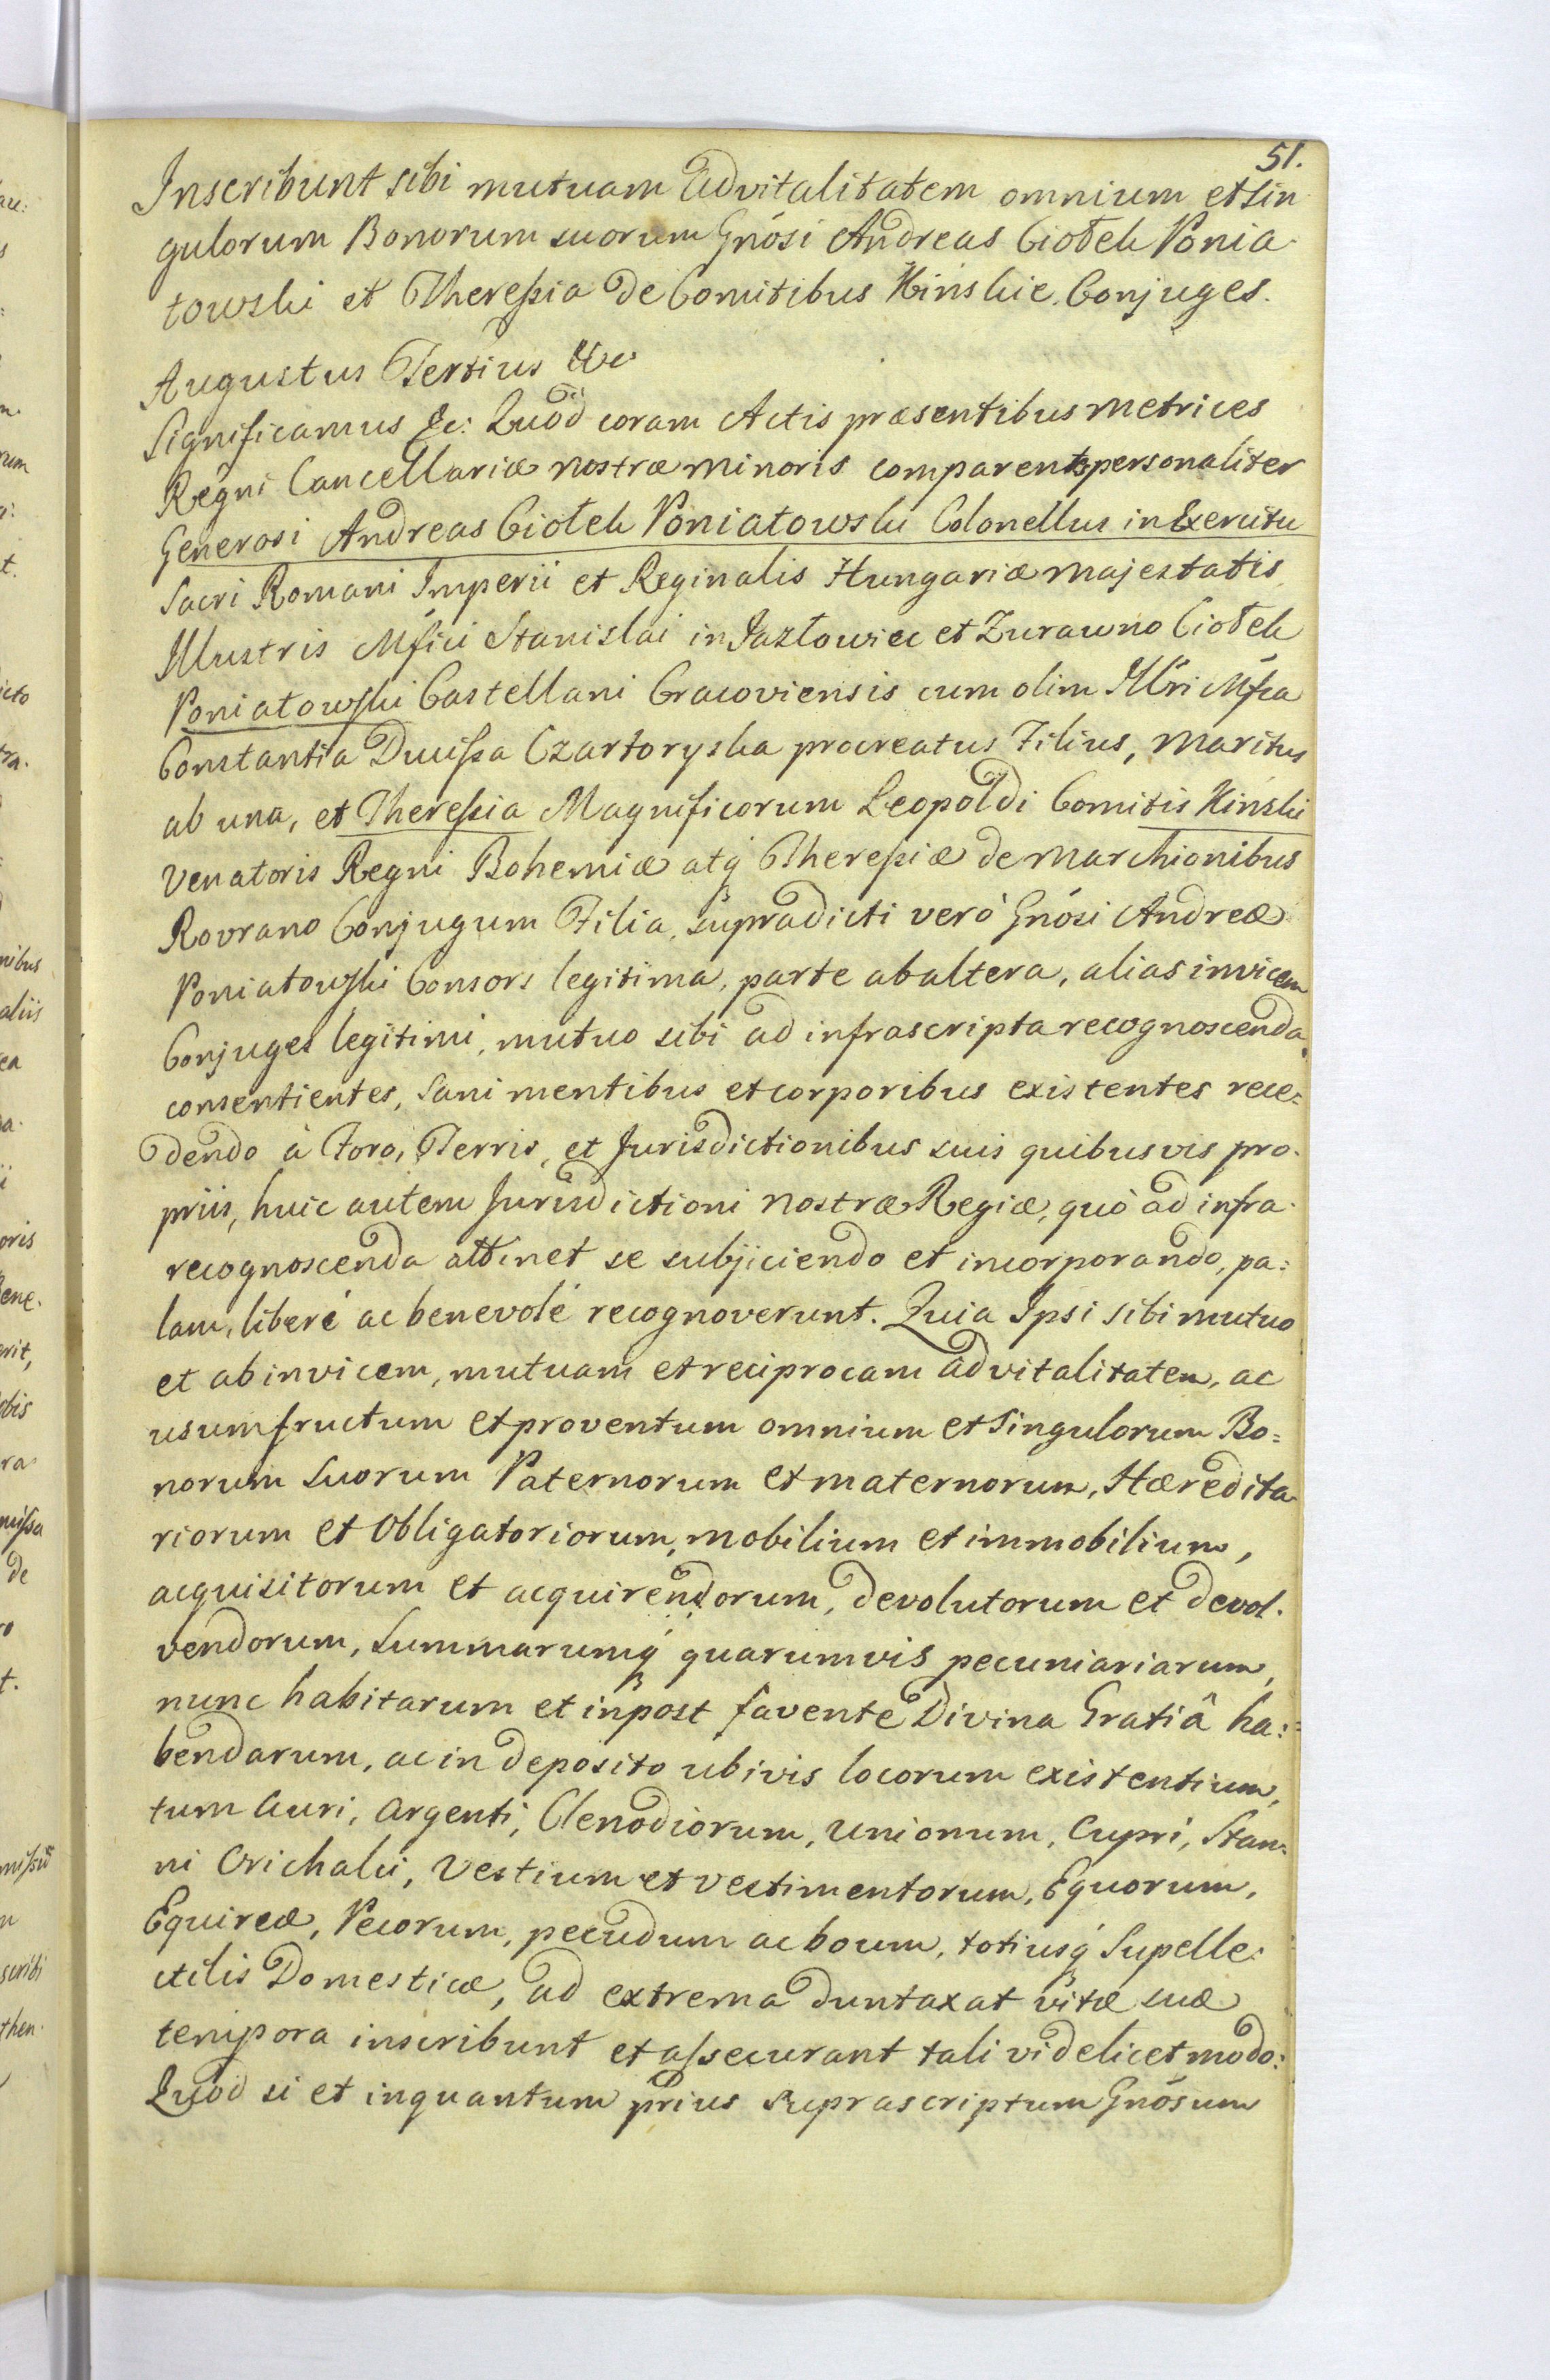 51.
Inscribunt sibi mutuam Advitalitatem omnium et Sin
gulorum Bonorum suorum Gnósi Andreas Ciołek Ponia-
towski et Theresia de Comitibus Kinskie Conjuges.
Augustus Tertius &c
Significamus &c: Quód coram Actis præsentibus Metrices
Regni Cancellariæ Nostræ Minoris comparentes personaliter
Generosi Andreas Ciołek Poniatowski Colonellus in Exercitu
Sacri Romani Imperii et Reginalis Hungariæ Majestatis
Illustris Mfici Stanislai in Jazłowiec et Zurawno Ciołek
Poniatowski Castellani Cracoviensis cum olim Illri Mfca
Constantia Ducissa Czartoryska procreatus Filius, Maritus
ab una, et Theresia Magnificorum Leopoldi Comitis Kinski
Venatoris Regni Bohemiæ atq́ Theresiæ de Marchionibus
Rovrano Conjugum Filia, supradicti veró Gnósi Andreæ
Poniatowski Consors legitima, parte ab altera, alias invicem
Conjuges legitimi, mutuo sibi ad infrascripta recognoscenda
consentientes, Sani mentibus et corporibus existentes rece=
dendo á Foro, Terris, et Jurisdictionibus suis quibusvis pro-
priis, huic autem Jurisdictioni Nostræ Regiæ, quó ad infra-
recognoscenda attinet se subjiciendo et incorporando, pa=
lam, liberé ac benevolé recognoverunt. Quia Ipsi sibi mutuo
et ab invicem, mutuam et reciprocam advitalitatem, ac
usumfructum et proventum omnium et Singulorum Bo=
norum Suorum Paternorum et Maternorum, Hæredita
riorum et Obligatoriorum, mobilium et immobilium,
acquisitorum et acquirendorum, devolutorum et devol-
vendorum, Summarumq́ quarumvis pecuniariarum,
nunc habitarum et inpost favente Divina Gratiâ ha=
bendarum, ac in deposito ubivis locorum existentium,
tum Auri, Argenti, Clenodiorum, Unionum, Cupri, Stan-
ni Orichalci, Vestium et Vestimentorum, Equorum,
Equireæ, Pecorum, pecudum ac boum, totiusq́ Supelle-
ctilis Domesticæ, ad extrema duntaxat vitæ suæ
tempora inscribunt et assecurant tali videlicet modo:
Quód si et inquantum prius suprascriptum Gnósum